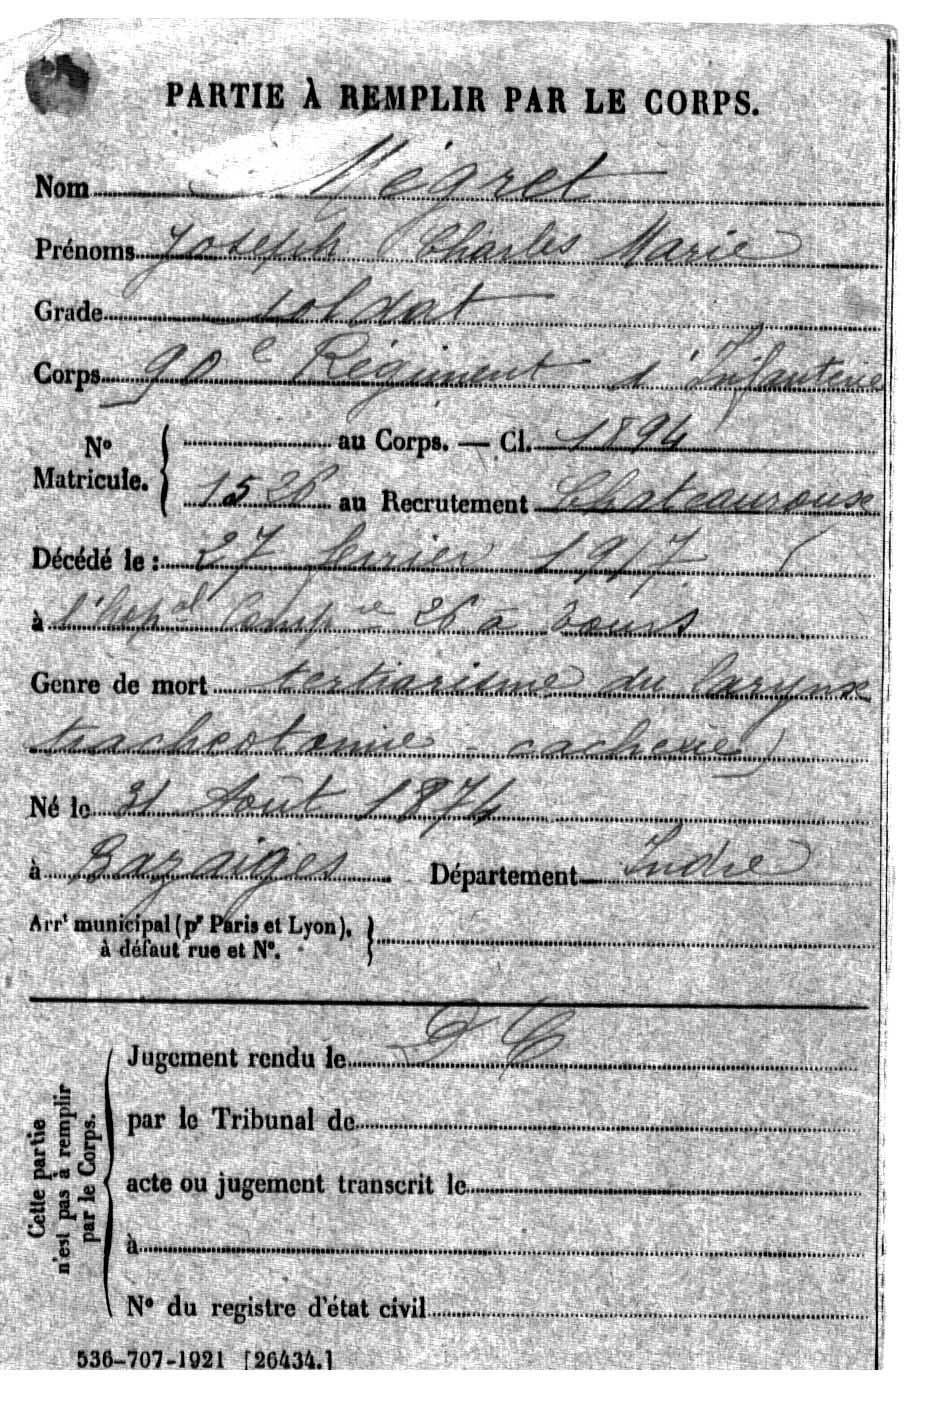 PARTIE À REMPLIR PAR LE CORPS.
Nom Mégret
Prénoms Joseph Charles Marie
Grade soldat
Corps 90e Régiment d'Infanterie
No Matricule. { au Corps. — Cl. 1894
1526 au Recrutement Chateauroux
Décédé le : 27 fevrier 1917
à l'hopal Compre 26 à Tours
Genre de mort tertiarisme du larynx
tracheotomie - cachexie)
Né le 31 Août 1874
à Bazaiges Département Indre
Arrt municipal (pr Paris et Lyon), à défaut rue et No. }
Cette partie n'est pas à remplir par le Corps.
Jugement rendu le
par le Tribunal de
acte ou jugement transcrit le
à
No du registre d'état civil
536-707-1921 [26434.]